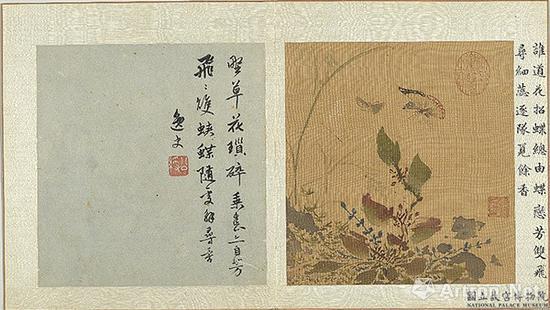 誰道花招蝶總由蝶戀芳雙飛
尋細蕊逐隊覓餘香
野草花瑣碎無意亦自芳
飛〻雙蛺蝶隨意解尋香
逸史
國立故宮博物院
NATIONAL PALACE MUSEUM
Artron.Net